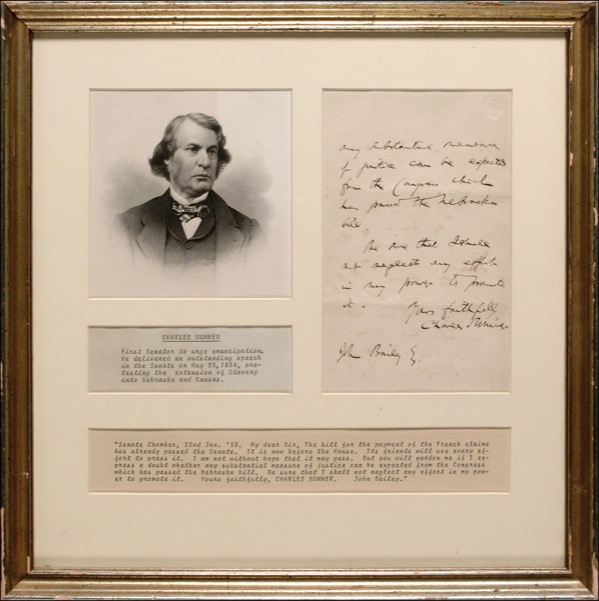 any substantial measure
of justice can be expected
from the Congress which
has passed the Nebraska
bill
Be sure that I shall
not neglect any effort
in my power to promote
it. Yours faithfully
Charles Sumner
John Bailey
CHARLES SUMNER
First Senator to urge emancipation.
He delivered an outstanding speech
in the Senate on May 25, 1854, pro-
testing the extension of Slavery
into Nebraska and Kansas.
"Senate Chamber, 22nd Jan. '55. My dear Sir, The bill for the payment of the French claims
has already passed the Senate. It is now before the House. Its friends will use every ef-
fort to press it. I am not without hope that it may pass. But you will pardon me if I ex-
press a doubt whether any substantial measure of justice can be expected from the Congress
which has passed the Nebraska bill. Be sure that I shall not neglect any effort in my pow-
er to promote it. Yours faithfully, CHARLES SUMNER. John Bailey."